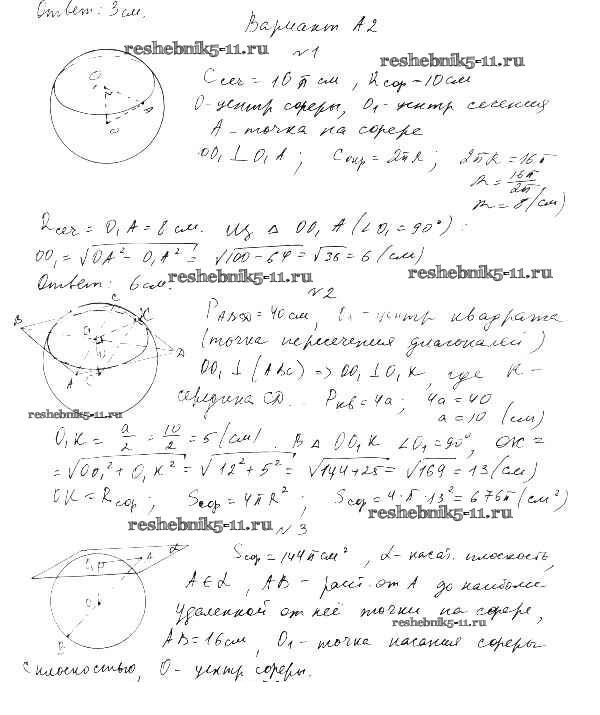 Ответ: 3 см.
Вариант А2
reshebnik5-11.ru
№1
reshebnik5-11.ru
Cсеч = 16π см, Rсф = 10 см
O - центр сферы, O₁ - центр сечения
A - точка на сфере
OO₁ ⊥ O₁A; Cокр = 2πR; 2πR = 16π
R = 16π/2π
R = 8 (см)
Rсеч = O₁A = 8 см. Из △ OO₁A (∠O₁ = 90°):
OO₁ = √OA² - O₁A² = √100-64 = √36 = 6 (см)
reshebnik5-11.ru
Ответ: 6 см.
reshebnik5-11.ru
№2
PABCD = 40 см, O₁ - центр квадрата
(точка пересечения диагоналей)
OO₁ ⊥ (ABC) => OO₁ ⊥ O₁K, где K -
середина CD. Pкв = 4a; 4a = 40
a = 10 (см)
reshebnik5-11.ru
O₁K = a/2 = 10/2 = 5 (см). В △ OO₁K ∠O₁ = 90°, OK =
= √OO₁² + O₁K² = √12² + 5² = √144+25 = √169 = 13 (см)
OK = Rсф; Sсф = 4πR²; Sсф = 4·π·13² = 676π (см²)
reshebnik5-11.ru
reshebnik5-11.ru
№3
Sсф = 144π см², α - касат. плоскость,
A ∈ α, AB - расст. от A до наиболее
удаленной от неё точки на сфере,
reshebnik5-11.ru
AB = 16 см, O₁ - точка касания сферы
с плоскостью, O - центр сферы.